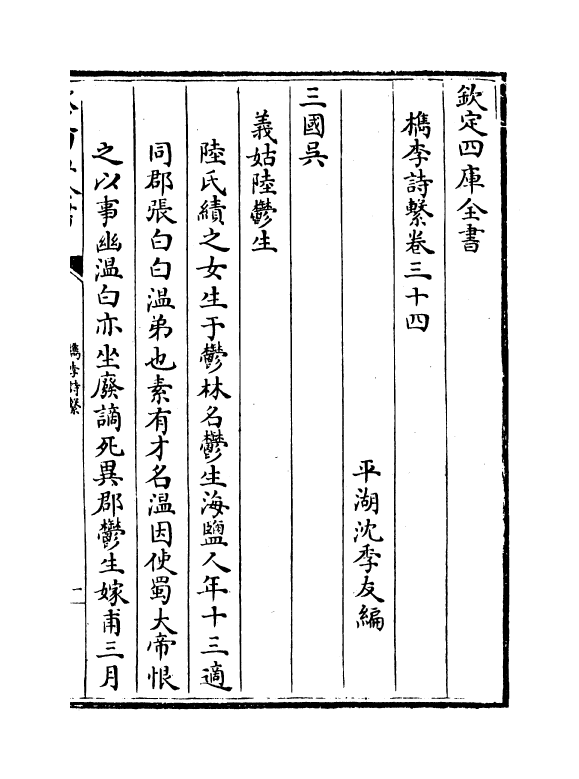 欽定四庫全書
檇李詩繫卷三十四
平湖沈季友編
三國吳
義姑陸鬱生
陸氏績之女生于鬱林名鬱生海鹽人年十三適
同郡張白白溫弟也素有才名溫因使蜀大帝恨
之以事幽溫白亦坐廢謫死異郡鬱生嫁甫三月
檇李詩繫